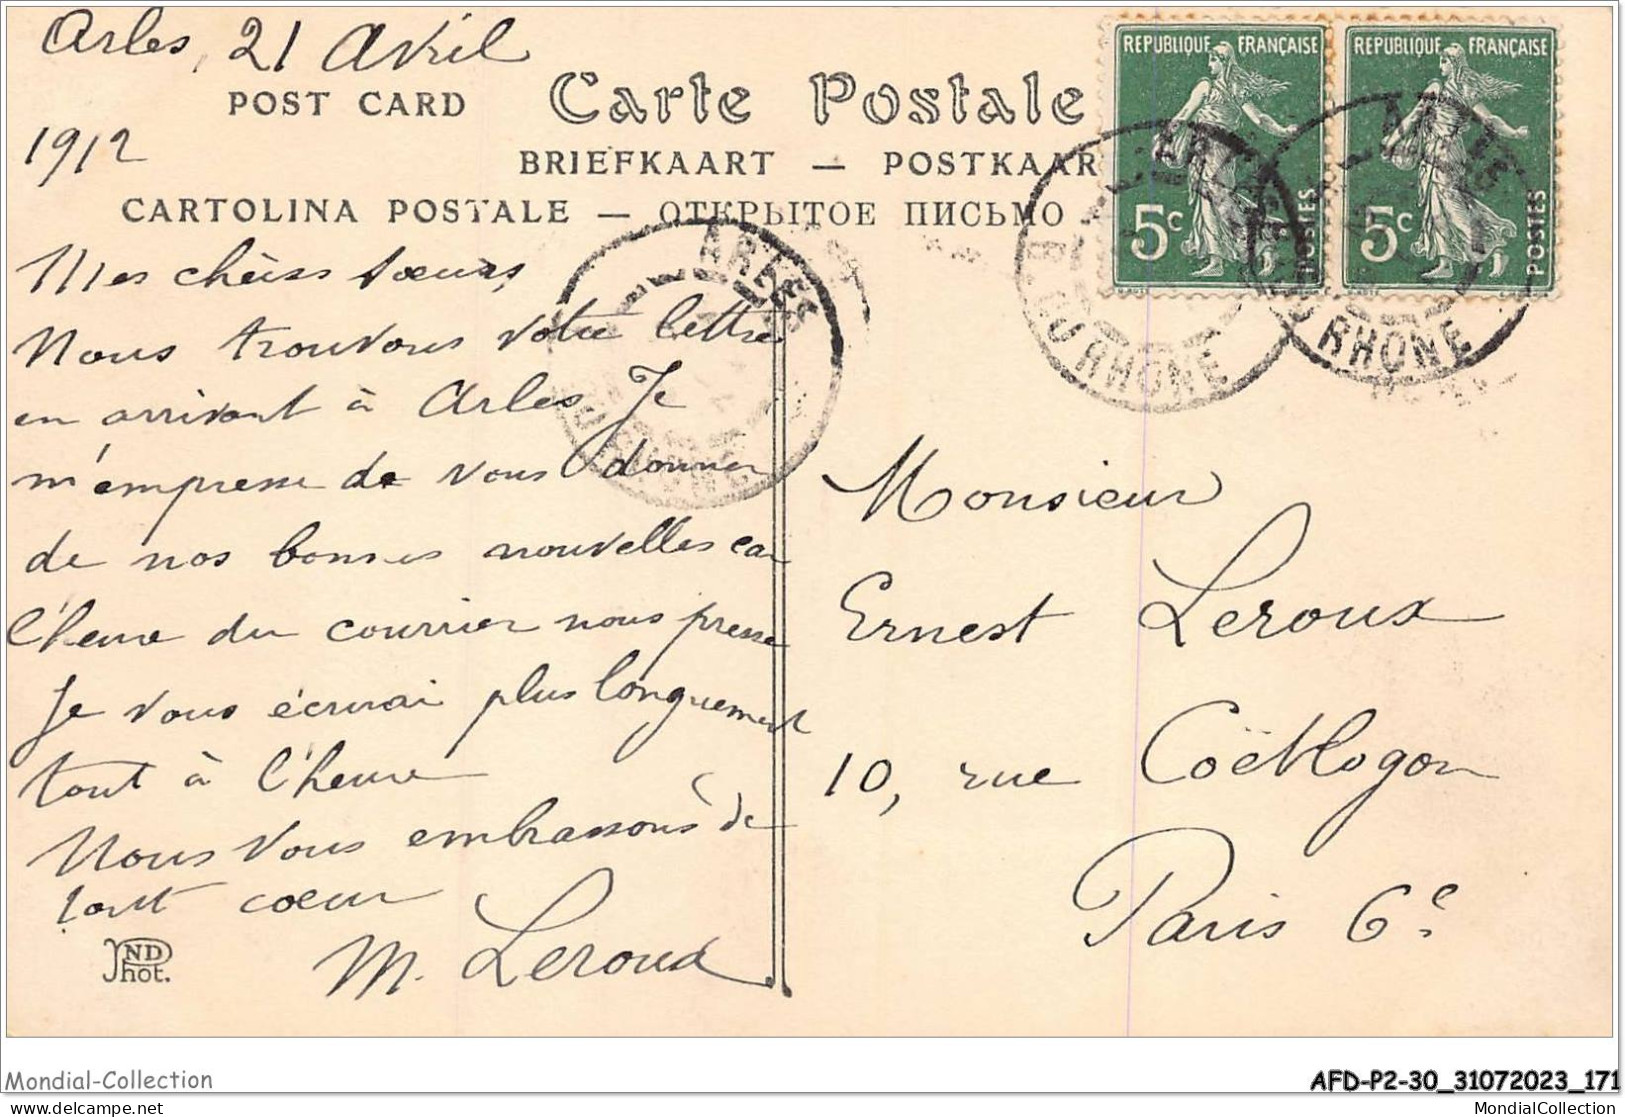 Arles, 21 Avril
1912
POST CARD
Carte Postale
BRIEFKAART — POSTKAAR
CARTOLINA POSTALE — ОТКРЫТОЕ ПИСЬМО
REPUBLIQUE FRANÇAISE
5c
POSTES
REPUBLIQUE FRANÇAISE
5c
POSTES
ARLES
B. DU RHONE
RHONE
ARLES
Mes chères sœurs,
Nous trouvons votre lettre
en arrivant à Arles. Je
m'empresse de vous donner
de nos bonnes nouvelles car
l'heure du courrier nous presse
Je vous écrirai plus longuement
tout à l'heure
Nous vous embrassons de
tout cœur
M. Leroux
Monsieur
Ernest Leroux
10, rue Coëtlogon
Paris 6e
ND
Phot.
Mondial-Collection
AFD-P2-30_31072023_171
www.delcampe.net
MondialCollection